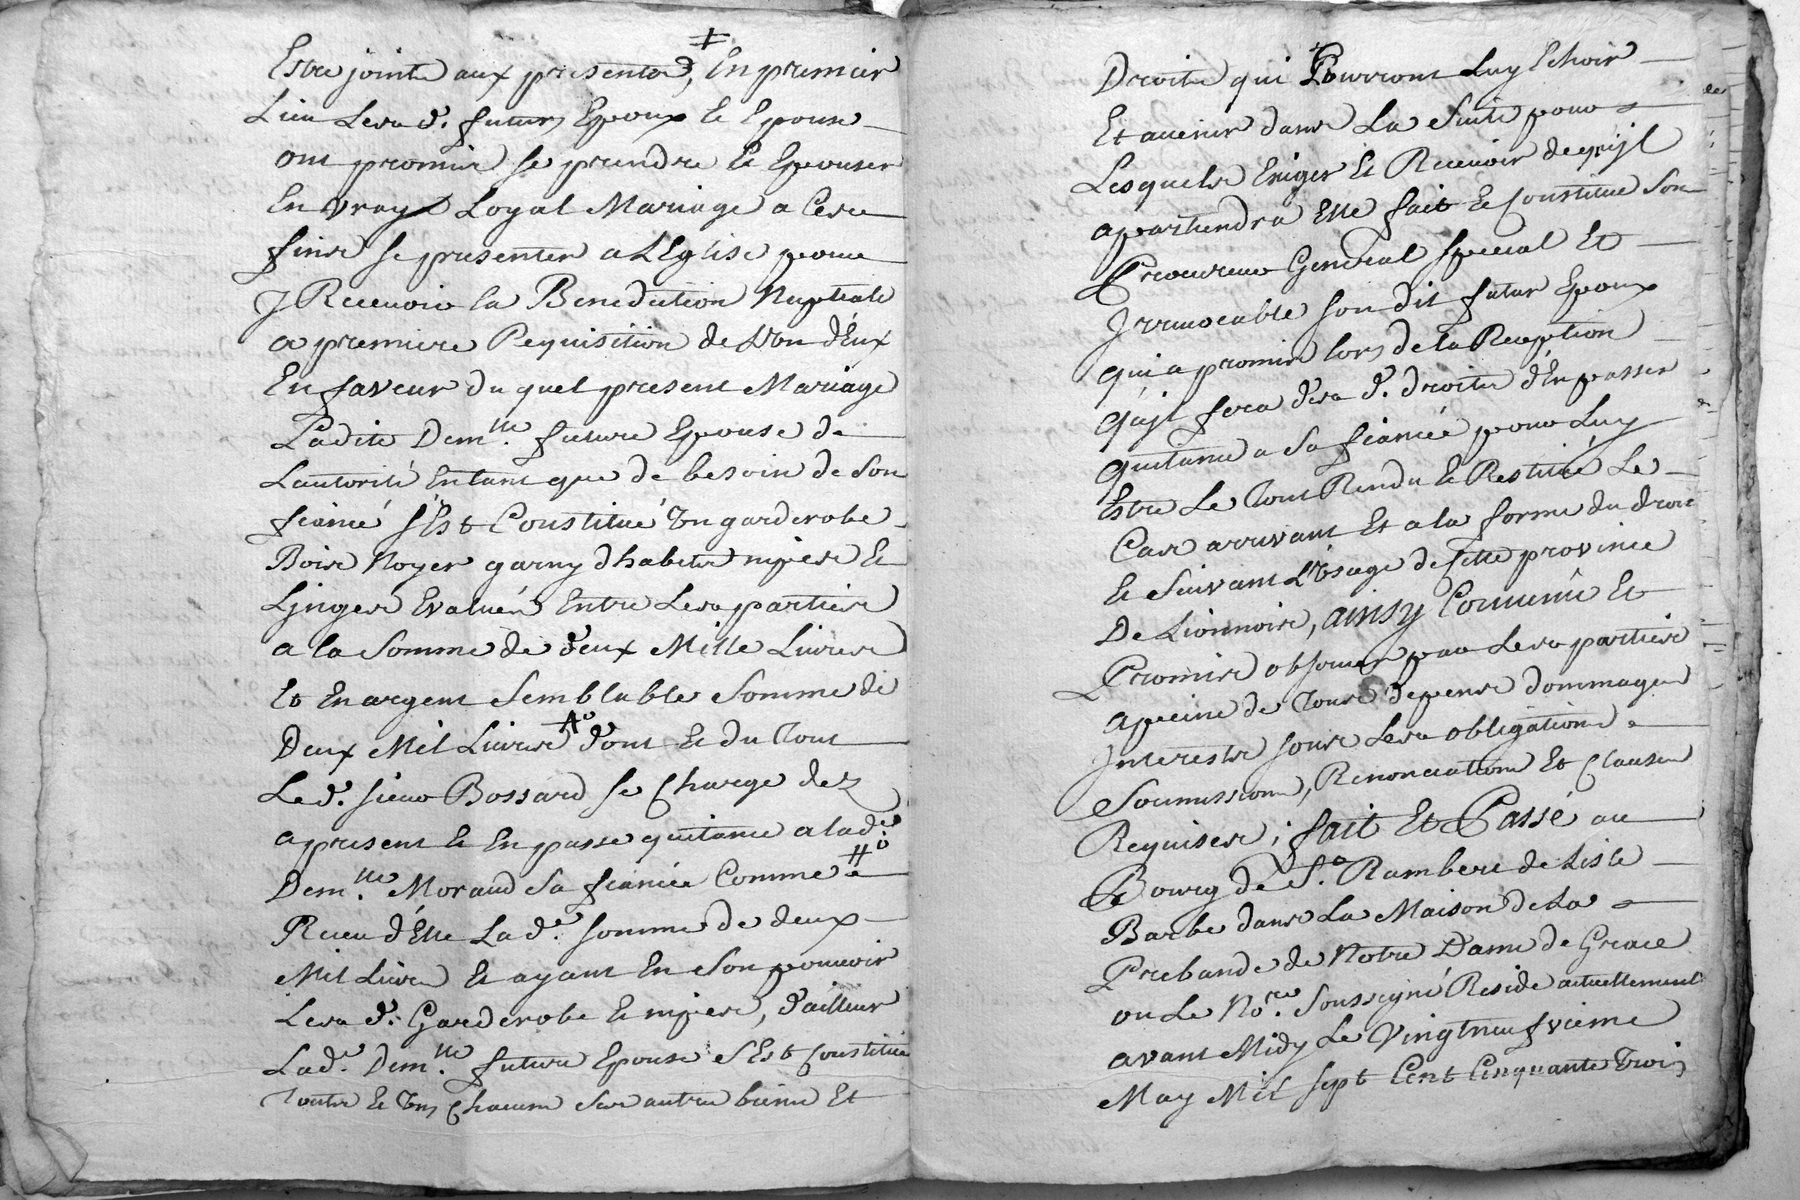 Estre jointe aux presentes, ‡ En premier
Lieu Lesd. futurs Epoux & Epouse
ont promis se prendre & Epouser
En vray & Loyal Mariage a Ces
fins se presenter a LEglise pour
J Recevoir la Benediction Nuptiale
a premiere Requisition de L'von d'Eux
En faveur du quel present Mariage
Ladite Dem.lle future Epouse de
Lautorité Entant que de besoin de Son
fiancé s'Est Constitué Vn garderobe
Bois Noyer garny dhabits nipes &
Linges Evalués Entre Les parties
a la Somme de deux Mille Livres
Et En argent Semblable Somme de
Deux Mil Livres dont & du Tout
Led. sieur Bossard se Charge dez
apresent & En passe quitance a lad.e
Dem.lle Morand Sa fiancée Comme
Receu d'Elle Lad.e somme de deux
Mil Livres & ayant En Son pouvoir
Lesd. Garderobe & nipes, d'ailleur
Lad.e Dem.lle future Epouse sEst Constitué
Toutes & Vns Chacuns Ses autres biens Et
Droits qui Pourront Luy Echoir
Et avenir dans La Suite pour
Lesquels Exiger Et Recevoir de qui Jl
apartiendra Elle fait & Constitue Son
Procureur General Special Et
Jrrevocable son dit futur Epoux
qui a promis lors de la Reception
qu'jl fera desd. droits d'En passer
quitance a Sa fiancée pour Luy
Estre Le Tout Rendu & Restitué Le
Cas arrivant Et a la forme du droit
& Suivant L'Vsage de Cette province
De Lionnois, ainsy Convenu Et
Promis observer par Les parties
a peine de Tous depens dommages
Jnterests sous Les obligations
Soumissions, Renonciations Et Clauses
Requises; fait Et Passé au
Bourg de St. Rambert de Lisle
Barbe dans La Maison de La
Prebande de Notre Dame de Grace
ou Le No.re Soussigné Reside actuellement
avant Midy Le Vingtneufvieme
May Mil sept Cent Cinquante Trois